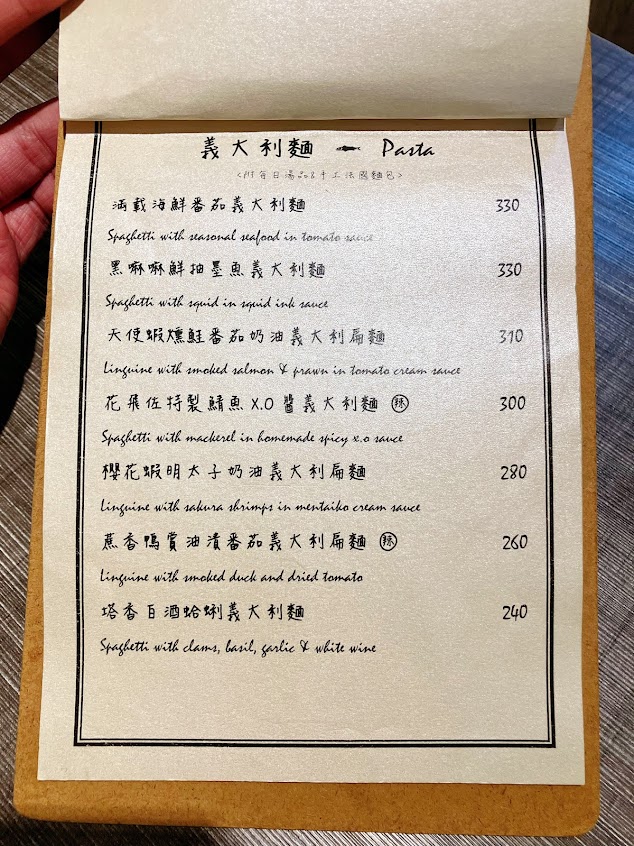 義大利麵 Pasta
<附每日湯品&手工法國麵包>
滿載海鮮番茄義大利麵 330
Spaghetti with seasonal seafood in tomato sauce
黑嘛嘛鮮抽墨魚義大利麵 330
Spaghetti with squid in squid ink sauce
天使蝦燻鮭番茄奶油義大利扁麵 310
Linguine with smoked salmon & prawn in tomato cream sauce
花飛佐特製鯖魚X.O醬義大利麵 辣 300
Spaghetti with mackerel in homemade spicy x.o sauce
櫻花蝦明太子奶油義大利扁麵 280
Linguine with sakura shrimps in mentaiko cream sauce
蕉香鴨賞油漬番茄義大利扁麵 辣 260
Linguine with smoked duck and dried tomato
塔香白酒蛤蜊義大利麵 240
Spaghetti with clams, basil, garlic & white wine